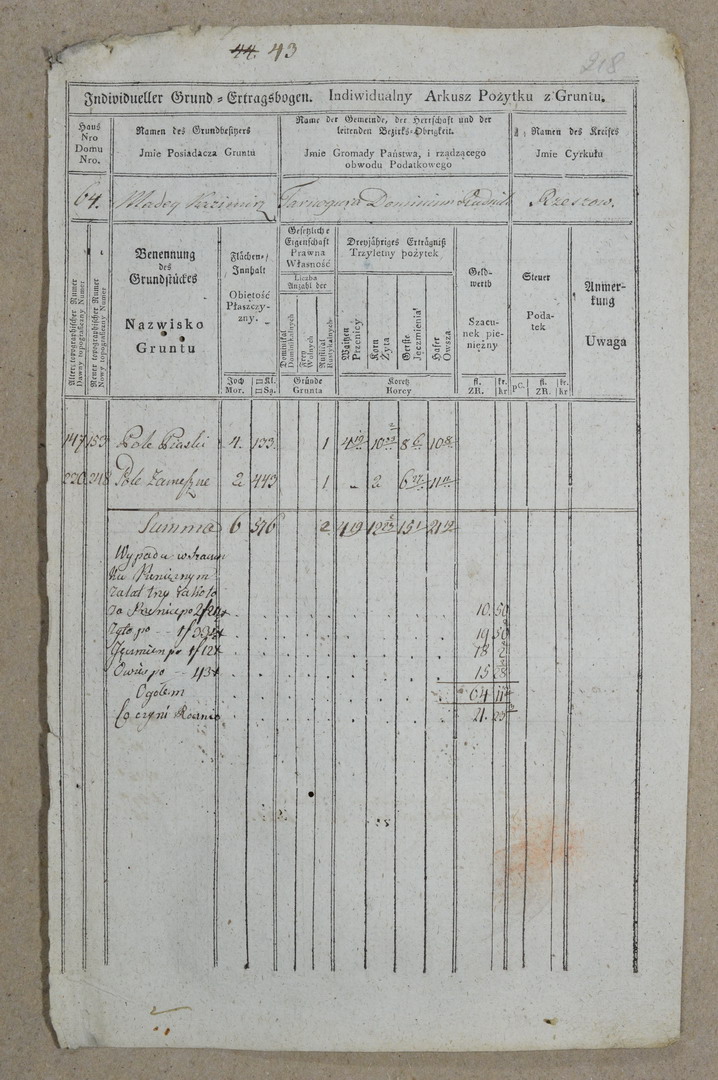 44. 43
218
Individueller Grund-Ertragsbogen. Indiwidualny Arkusz Pożytku z Gruntu.
Haus Nro Domu Nro.
Namen des Grundbesitzers
Jmie Posiadacza Gruntu
Name der Gemeinde, der Herrschaft und der leitenden Bezirks-Obrigkeit.
Jmie Gromady Państwa, i rządzącego obwodu Podatkowego
Namen des Kreises
Jmie Cyrkułu
64. Madey Kazimirz Tarnogura Dominium Rudnik Rzeszow.
Alter topographischer Numer
Dawny topograficzny Numer
Neuer topographischer Numer
Nowy topograficzny Numer
Benennung des Grundstückes
Nazwisko Gruntu
Flächen-Innhalt
Obiętość Płaszczyzny.
Joch Mor.
□ Kl. □ Są.
Gesetzliche Eigenschaft
Prawna Własność
Liczba
Anzahl der
Dominikal Dominikalnych
Frey Wolnych
Rustikal Rustykalnych
Gründe
Grunta
Dreyjähriges Erträgniß
Trzyletny pożytek
Waitzen Przenicy
Korn Żyta
Gerste Jęczmienia
Hafer Owsa
Koretz
Korcy
Geldwerth
Szacunek pieniężny
fl. ZR.
kr. kr
Steuer
Podatek
pC.
fl. ZR.
kr. kr
Anmerkung
Uwaga
147 153 Pole Piaski 4. 133. 1
230 248 Pole 2 443 1
Summa 6 576 2
Wypada w Szacunku Pienieznym
za lat trzy
za Przenice po
Zyto po
Jęczmien po
Owies po 43
10. 50
19 50
18 2
15 28
Ogołem 64 11
Co czyni Rocznie 21. 23